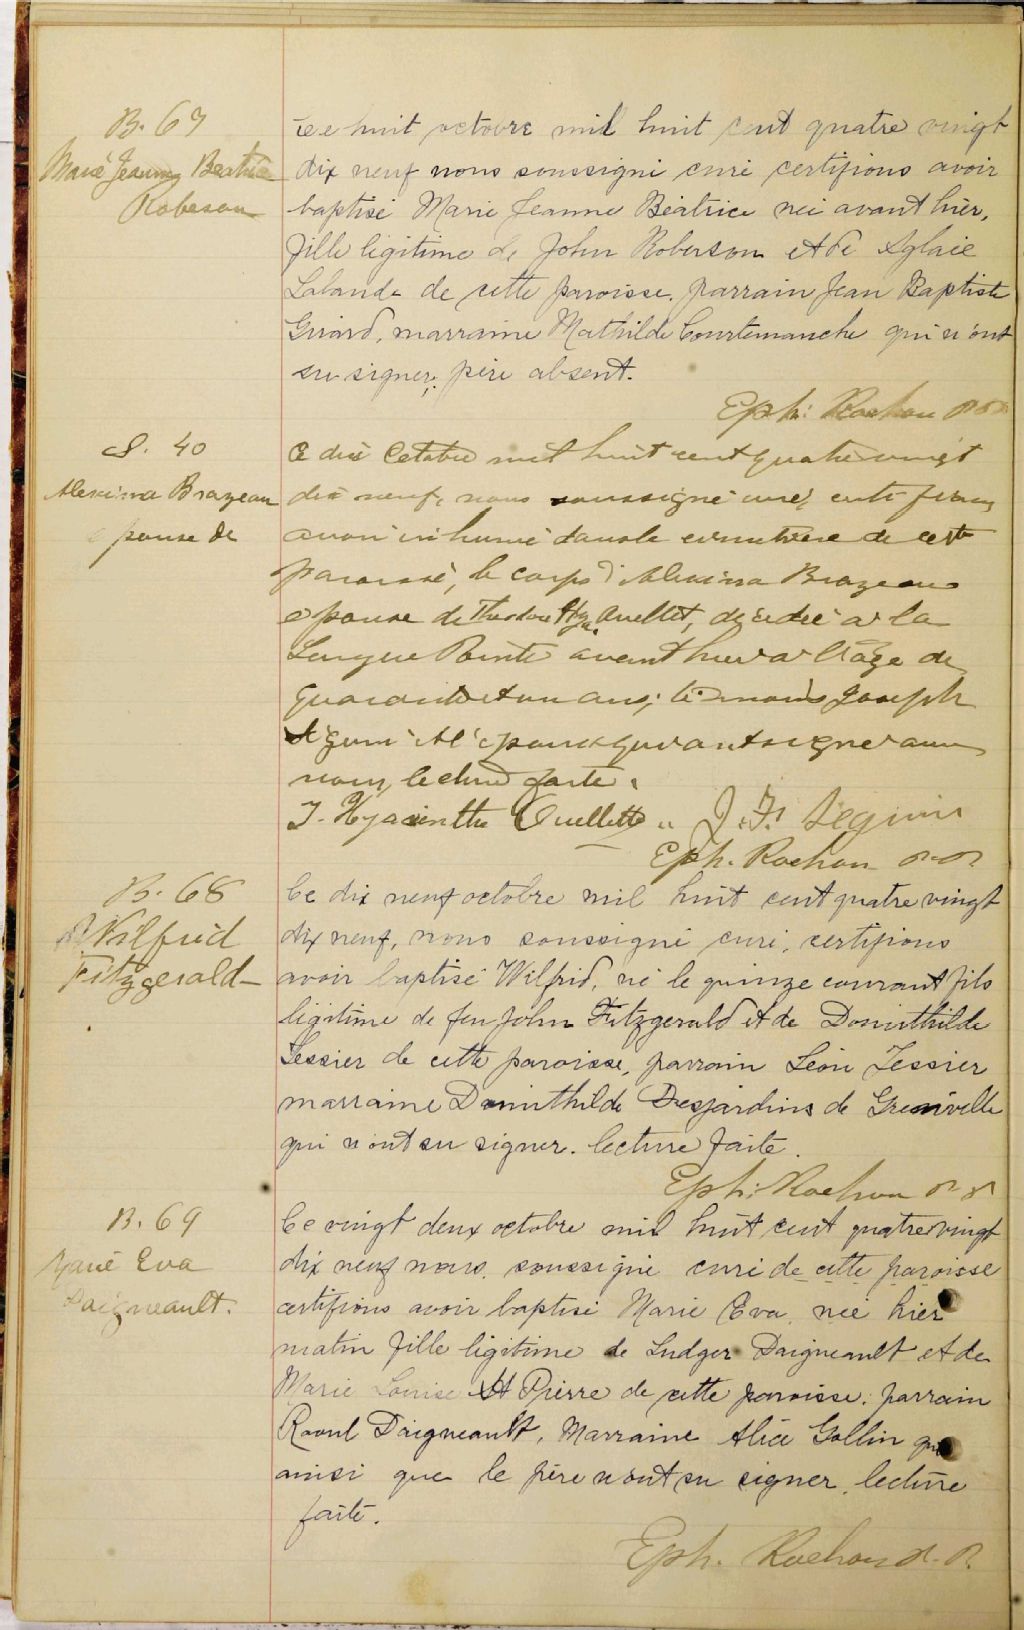 B. 67
Marie Jeanne Béatrice
Roberson
Ce huit octobre mil huit cent quatre vingt
dix neuf nous soussigné curé certifions avoir
baptisé Marie Jeanne Béatrice née avant hier,
fille légitime de John Roberson et de Aglaïe
Lalande de cette paroisse. parrain Jean Baptiste
Girard, marraine Mathilde Courtemanche qui n'ont
su signer; père absent.
Eph: Rochon ptr
S. 40
Alexina Brazeau
épouse de
Ce dix Octobre mil huit cent quatre vingt
dix neuf, nous soussigné curé, certifions
avoir inhumé dans le cimetière de cette
paroisse, le corps d'Alexina Brazeau
épouse de Hya. Ouellet, décédée à la
Longue Pointe avant hier à l'âge de
quarante et un ans; témoins Joseph
Séguin et l'époux qui ont signé avec
nous, lecture faite.
J. Hyacinthe Ouellette " J. F. Séguin
Eph. Rochon
B. 68
Wilfrid
Fitzgerald
Ce dix neuf octobre mil huit cent quatre vingt
dix neuf, nous soussigné curé, certifions
avoir baptisé Wilfrid, né le quinze courant fils
légitime de feu John Fitzgerald et de Domithilde
Tessier de cette paroisse, parrain Léon Tessier
marraine Domithilde Desjardins de Grenville
qui n'ont su signer. lecture faite.
Eph: Rochon
B. 69
Marie Eva
Daigneault.
Ce vingt deux octobre mil huit cent quatre vingt
dix neuf nous soussigné curé de cette paroisse
certifions avoir baptisé Marie Eva, née hier
matin fille légitime de Ludger Daigneault et de
Marie Louise St Pierre de cette paroisse. parrain
Raoul Daigneault, Marraine Alice Gollin qui
ainsi que le père n'ont su signer, lecture
faite.
Eph. Rochon